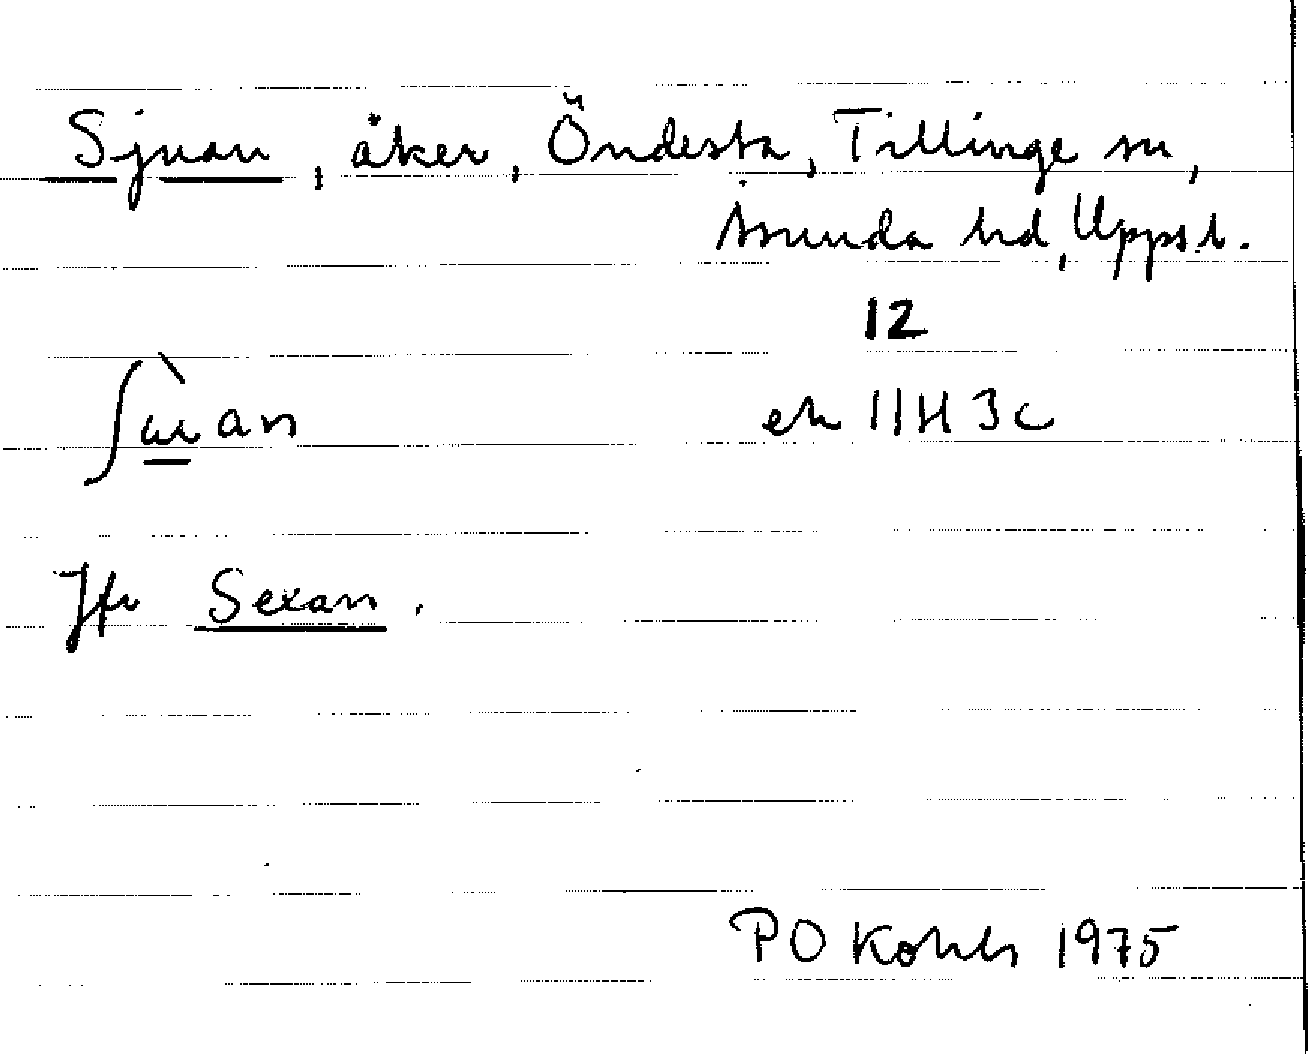 Sjuan, åker, Öndesta, Tillinge sn,
Åsunda hd, Upps.l.
12
ʃɯ̀an
ek 11H 3c
Jfr Sexan.
P O Kohls 1975